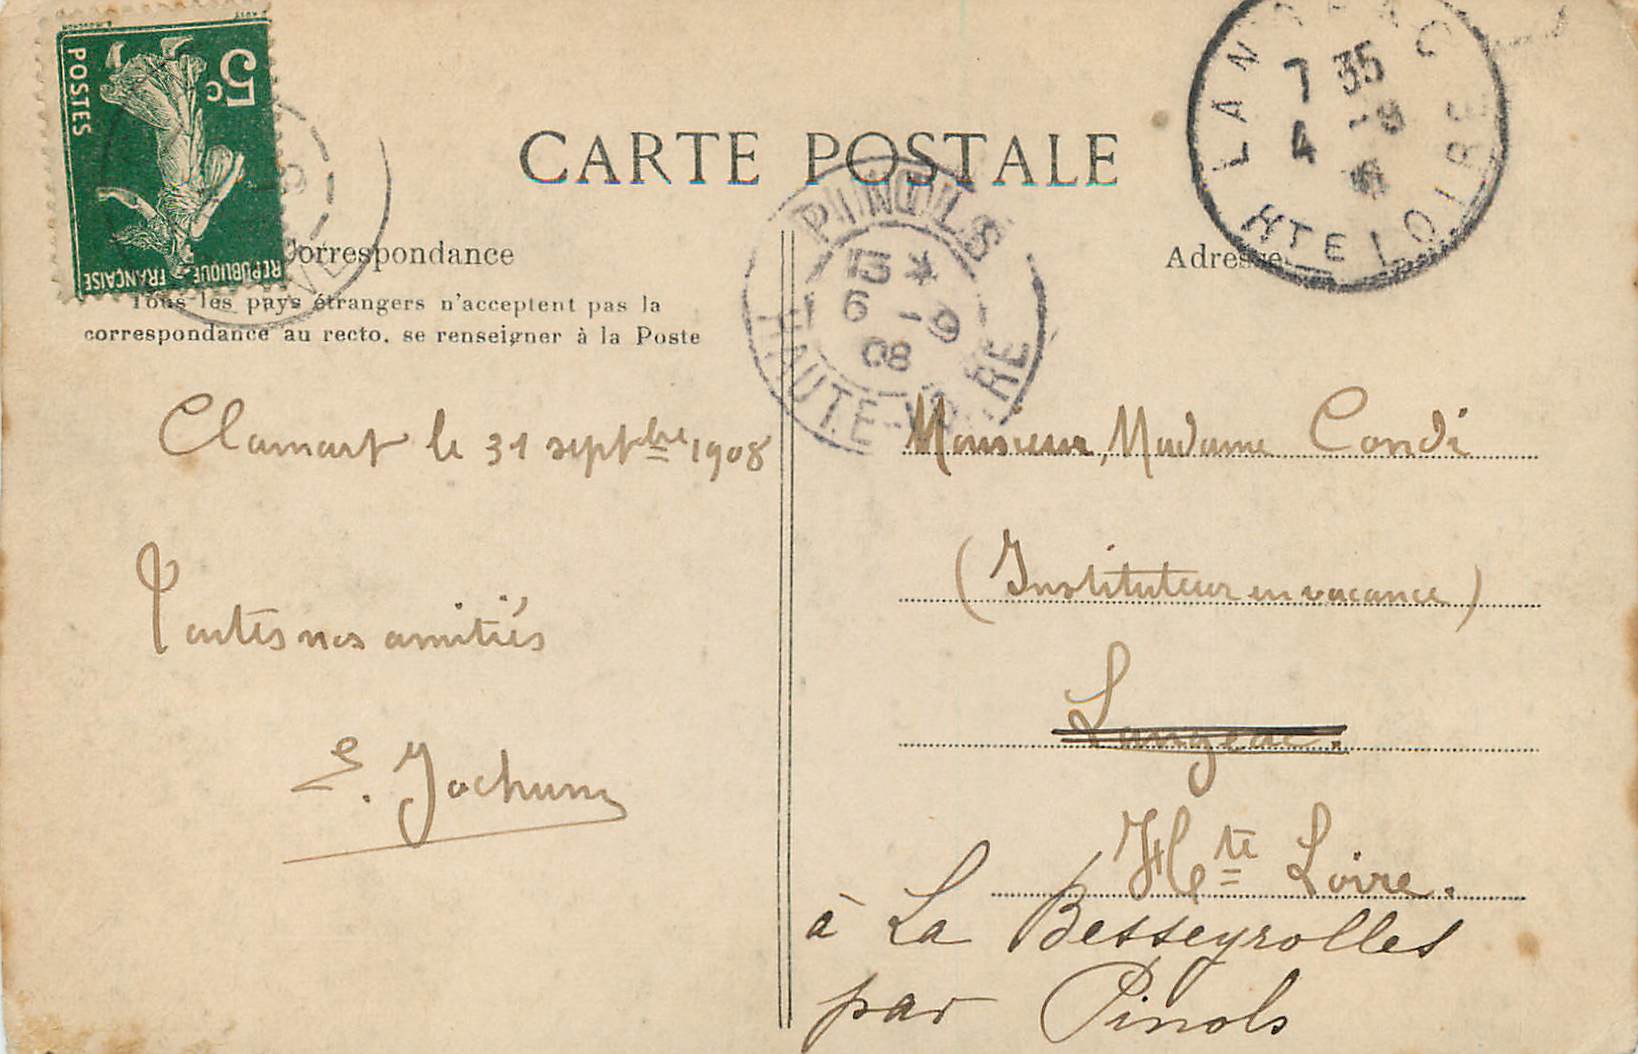 5c
POSTES
REPUBLIQUE FRANÇAISE
CARTE POSTALE
Correspondance
Tous les pays étrangers n'acceptent pas la
correspondance au recto, se renseigner à la Poste
Clamart le 31 septbre 1908
Toutes nos amitiés
E. Jochum
PINOLS
15 *
6 -9
08
HAUTE-LOIRE
LANGEAC
7 35
4 -9
HTE LOIRE
Adresse
Monsieur, Madame Condi
(Instituteur en vacance)
Langeac.
Hte Loire.
à La Besseyrolles
par Pinols